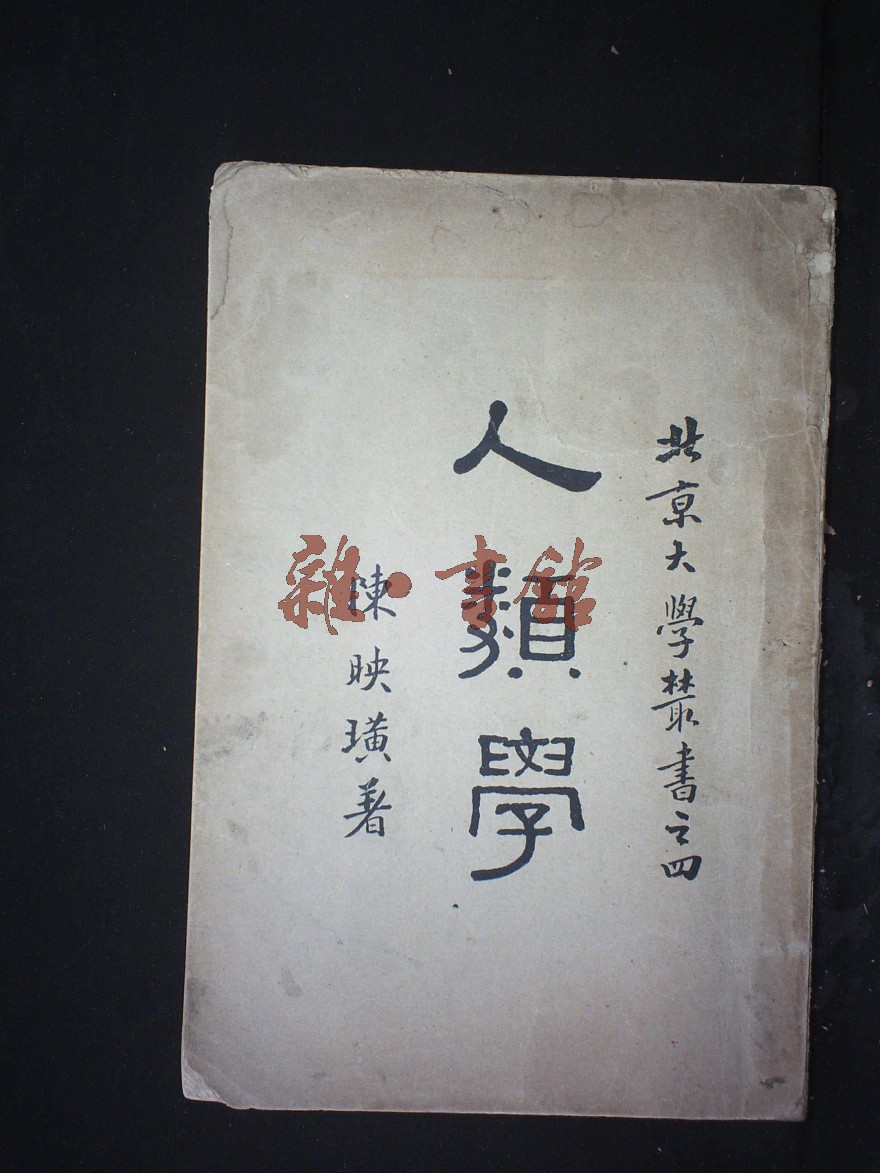 北京大學叢書之四
人類學
陳映璜著
雜·書館